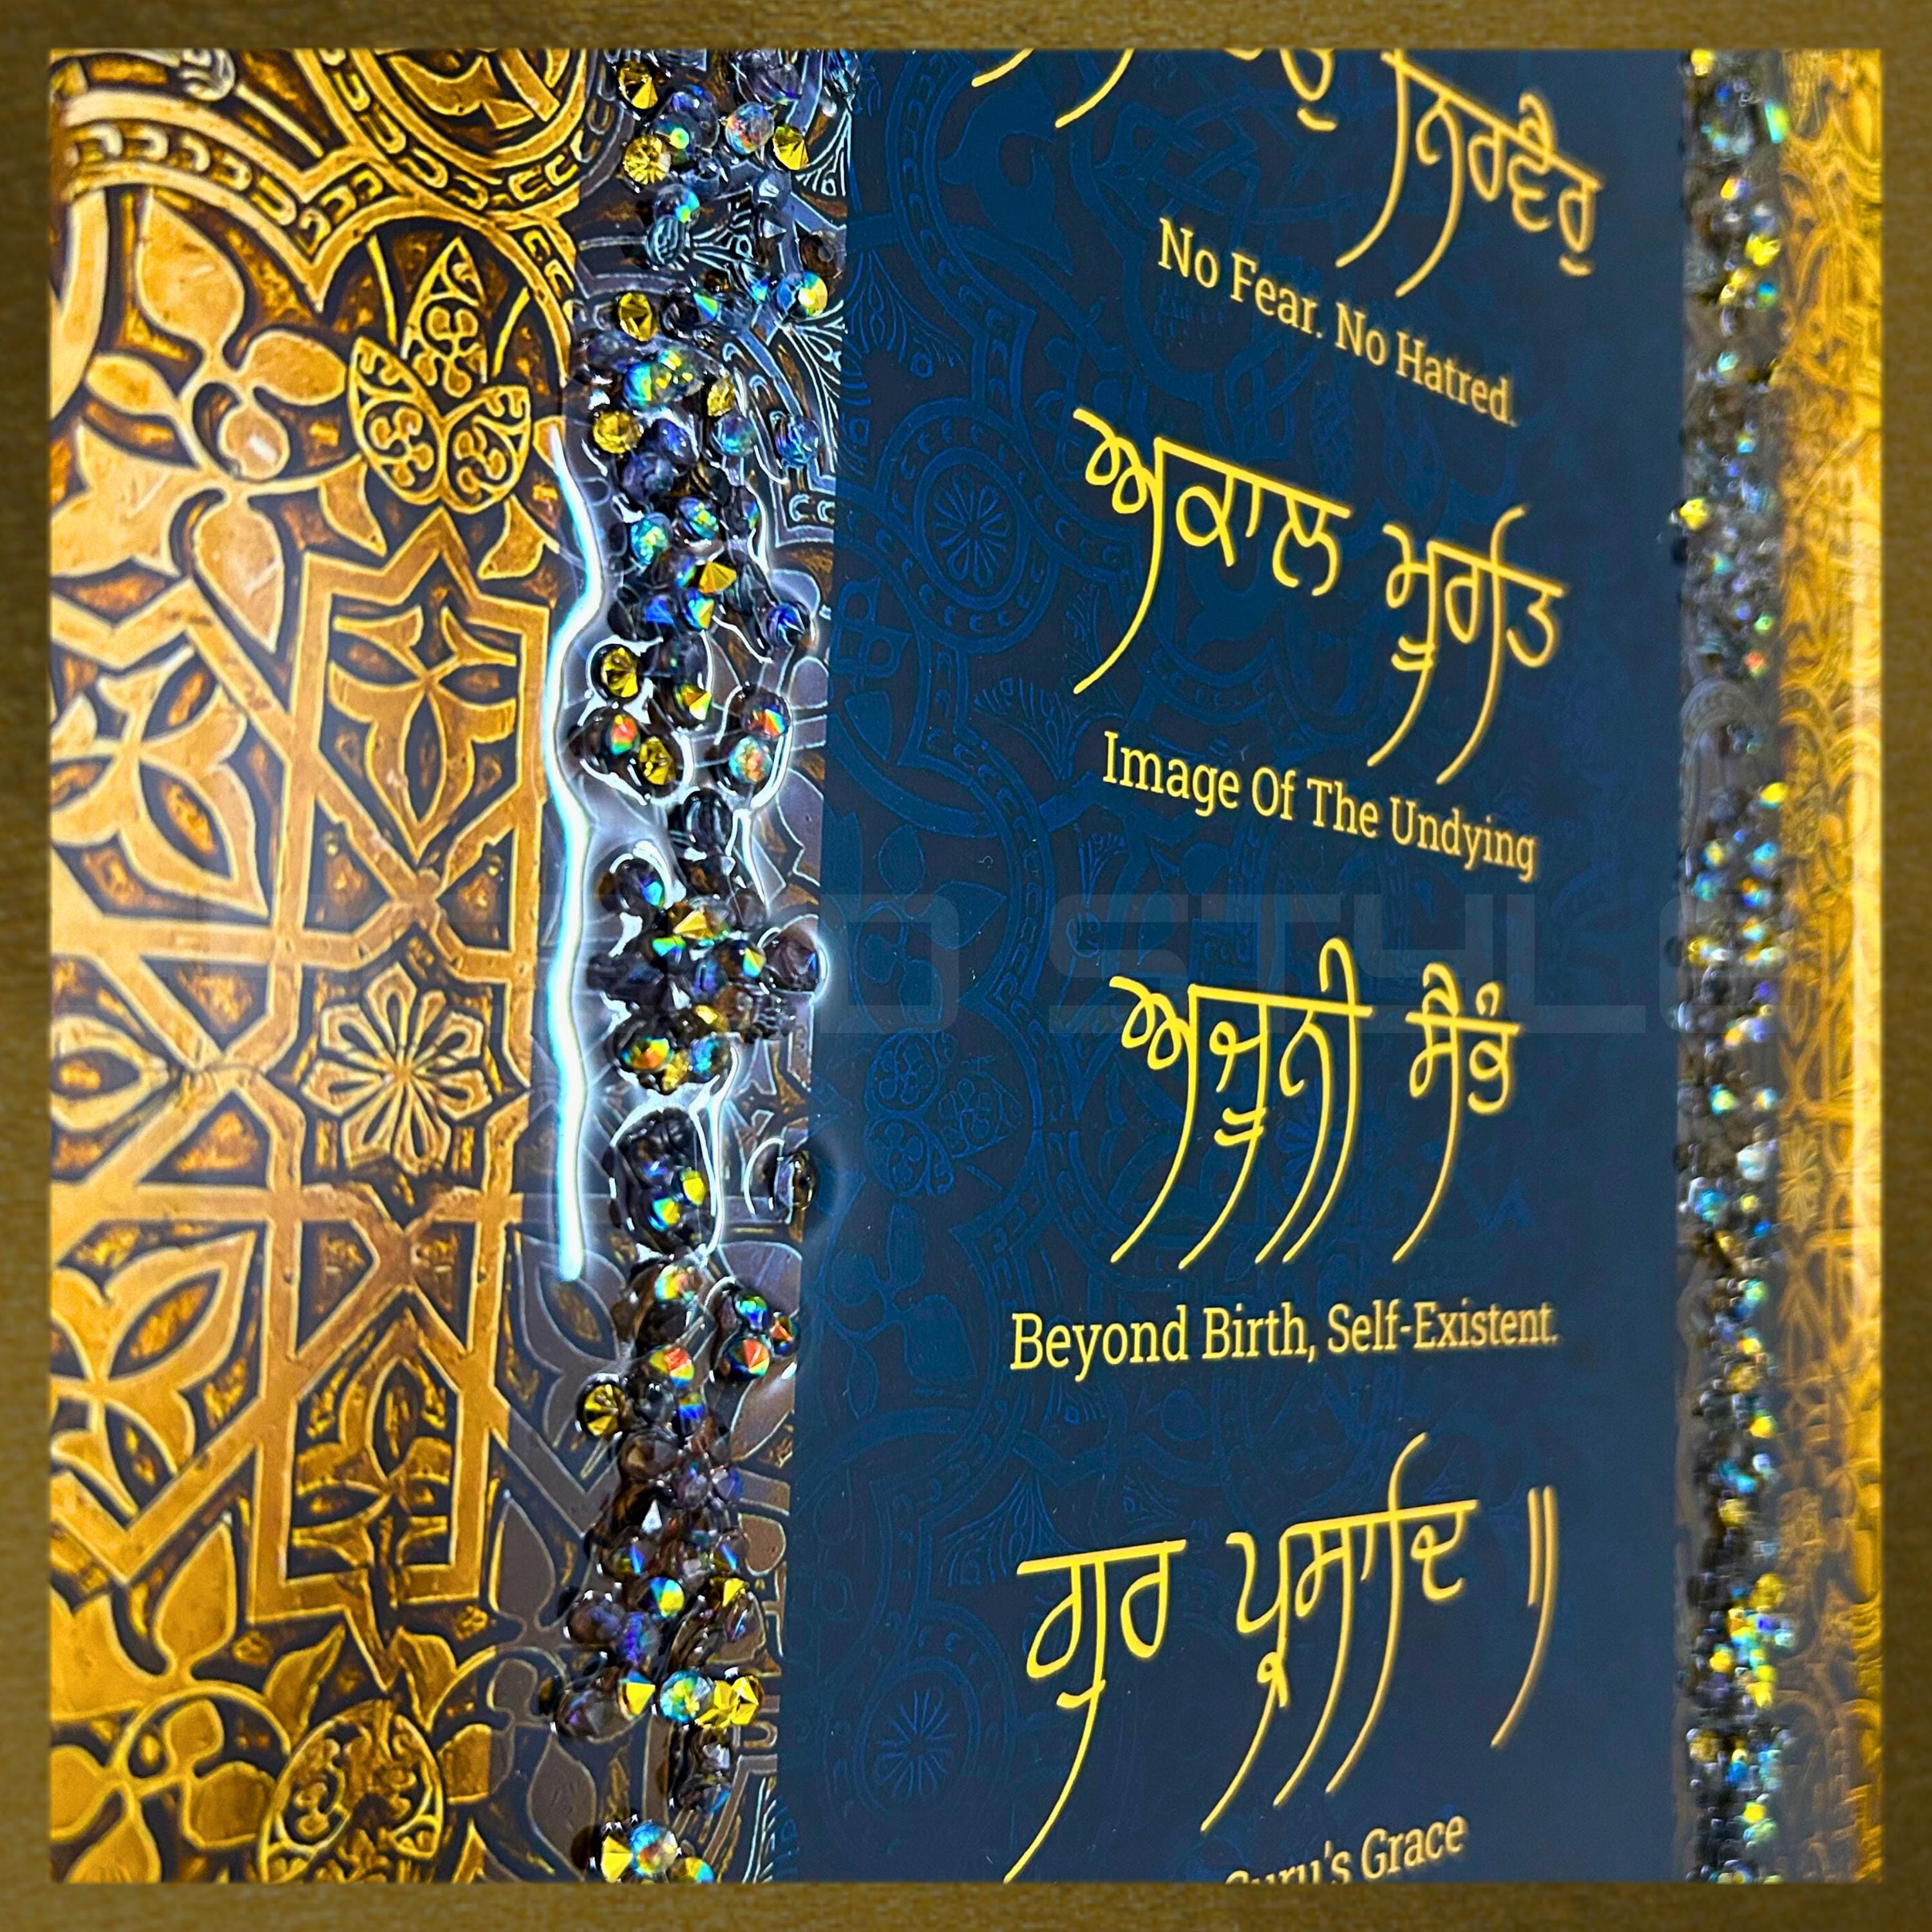 ਨਿਰਵੈਰੁ
No Fear. No Hatred.
ਅਕਾਲ ਮੂਰਤਿ
Image Of The Undying
ਅਜੂਨੀ ਸੈਭੰ
Beyond Birth, Self-Existent.
ਗੁਰ ਪ੍ਰਸਾਦਿ ॥
Guru's Grace